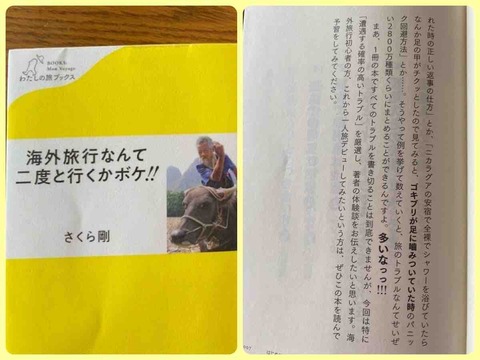 BOOKS
Mon Voyage
わたしの旅ブックス
海外旅行なんて
二度と行くかボケ!!
さくら剛
れた時の正しい返事の仕方」とか、「ニカラグアの安宿で全裸でシャワーを浴びていたら
なんか足の甲がチクッとしたので見てみると、ゴキブリが足に嚙みついていた時のパニッ
ク回避方法」とか……。そうやって例を挙げて数えていくと、旅のトラブルなんてせいぜ
い2800万種類くらいにまとめることができるんですよ。多いなっ!!!
まあ、1冊の本ですべてのトラブルを書き切ることは到底できませんが、今回は特に
「遭遇する確率の高いトラブル」を厳選し、著者の体験談をお伝えしたいと思います。海
外旅行初心者の方、これから一人旅デビューしてみたいという方は、ぜひこの本を読んで
予習をしてみてください。